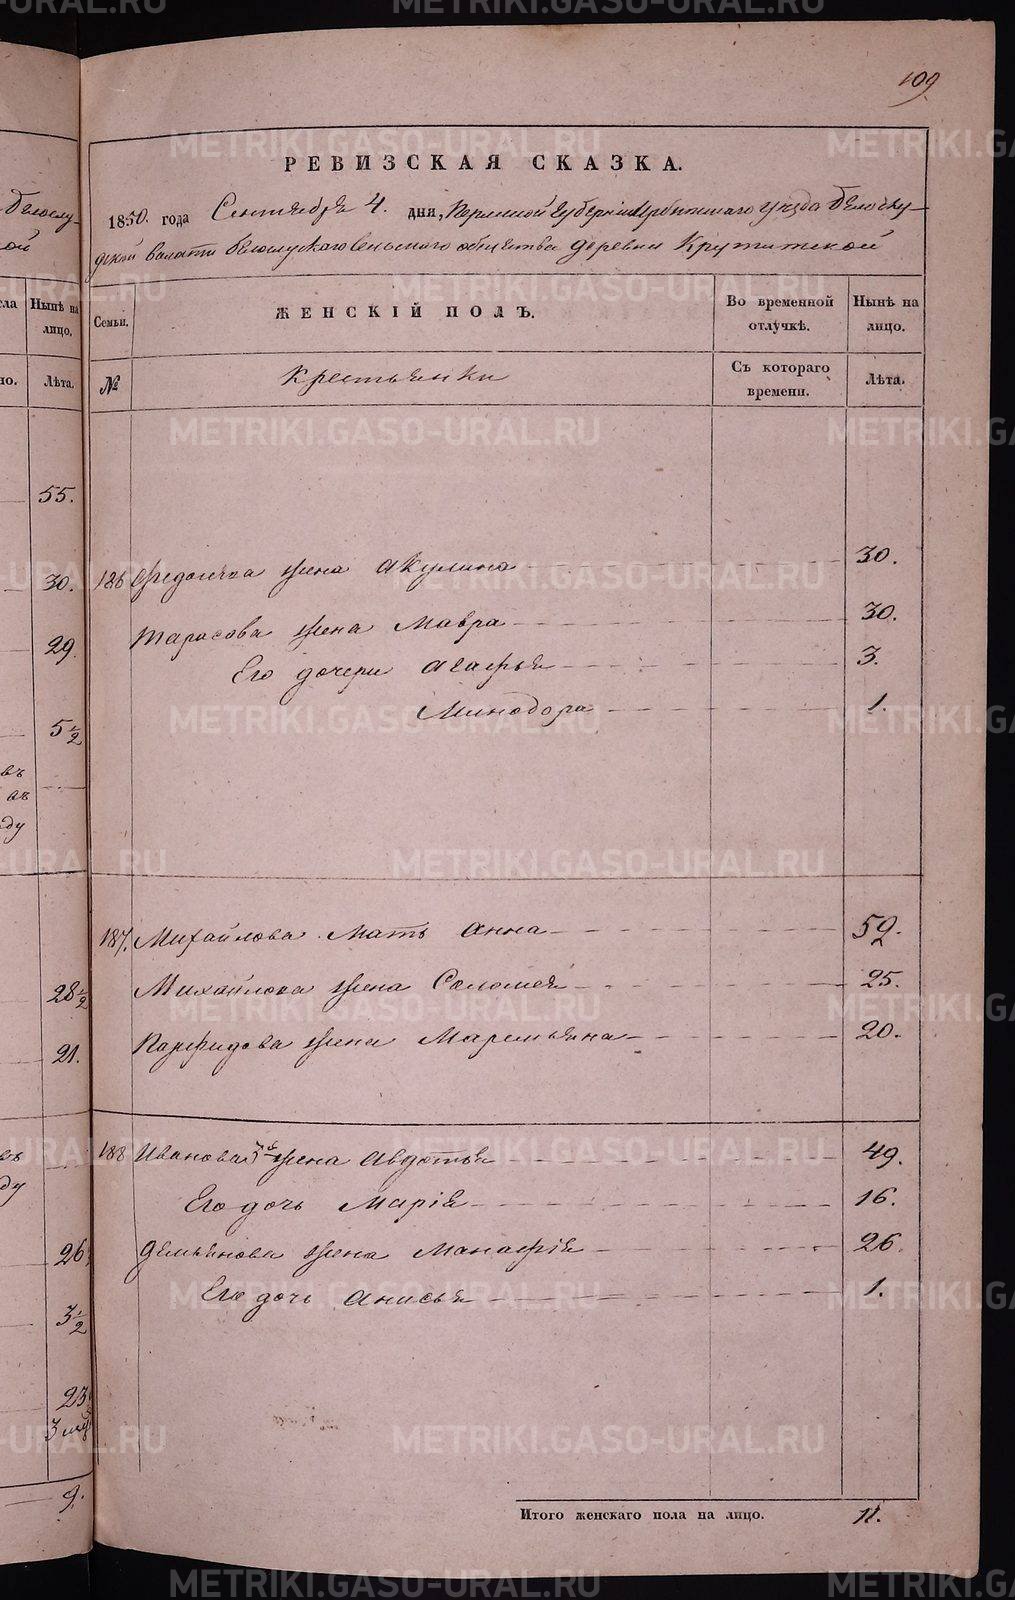 109
РЕВИЗСКАЯ СКАЗКА.
1850. года Сентября 4. дня, Пермской Губернии Ирбитскаго Уезда Белослу-
дской волости Белослудскаго сельскаго общества деревни Крутитской
Семьи. ЖЕНСКІЙ ПОЛЪ. Во временной отлучкѣ. Нынѣ на лицо.
№ Крестьянки Съ котораго времени. Лѣта.
186 жена Акулина 30.
Тарасова жена Мавра 30.
Его дочери Агафья 3.
Минодора 1.
187. Михайлова Мать Анна 59.
Михайлова жена Саломея 25.
жена Маремьяна 20.
188 Иванова жена Авдотья 49.
Его дочь Марія 16.
Демьянова жена Манафія 26.
Его дочь Анисья 1.
Итого женскаго пола на лицо. 11.
Нынѣ на лицо.
Лѣта.
55.
30.
29.
5 1/2
28 1/2
21.
26
3 1/2
23
9.
METRIKI.GASO-URAL.RU